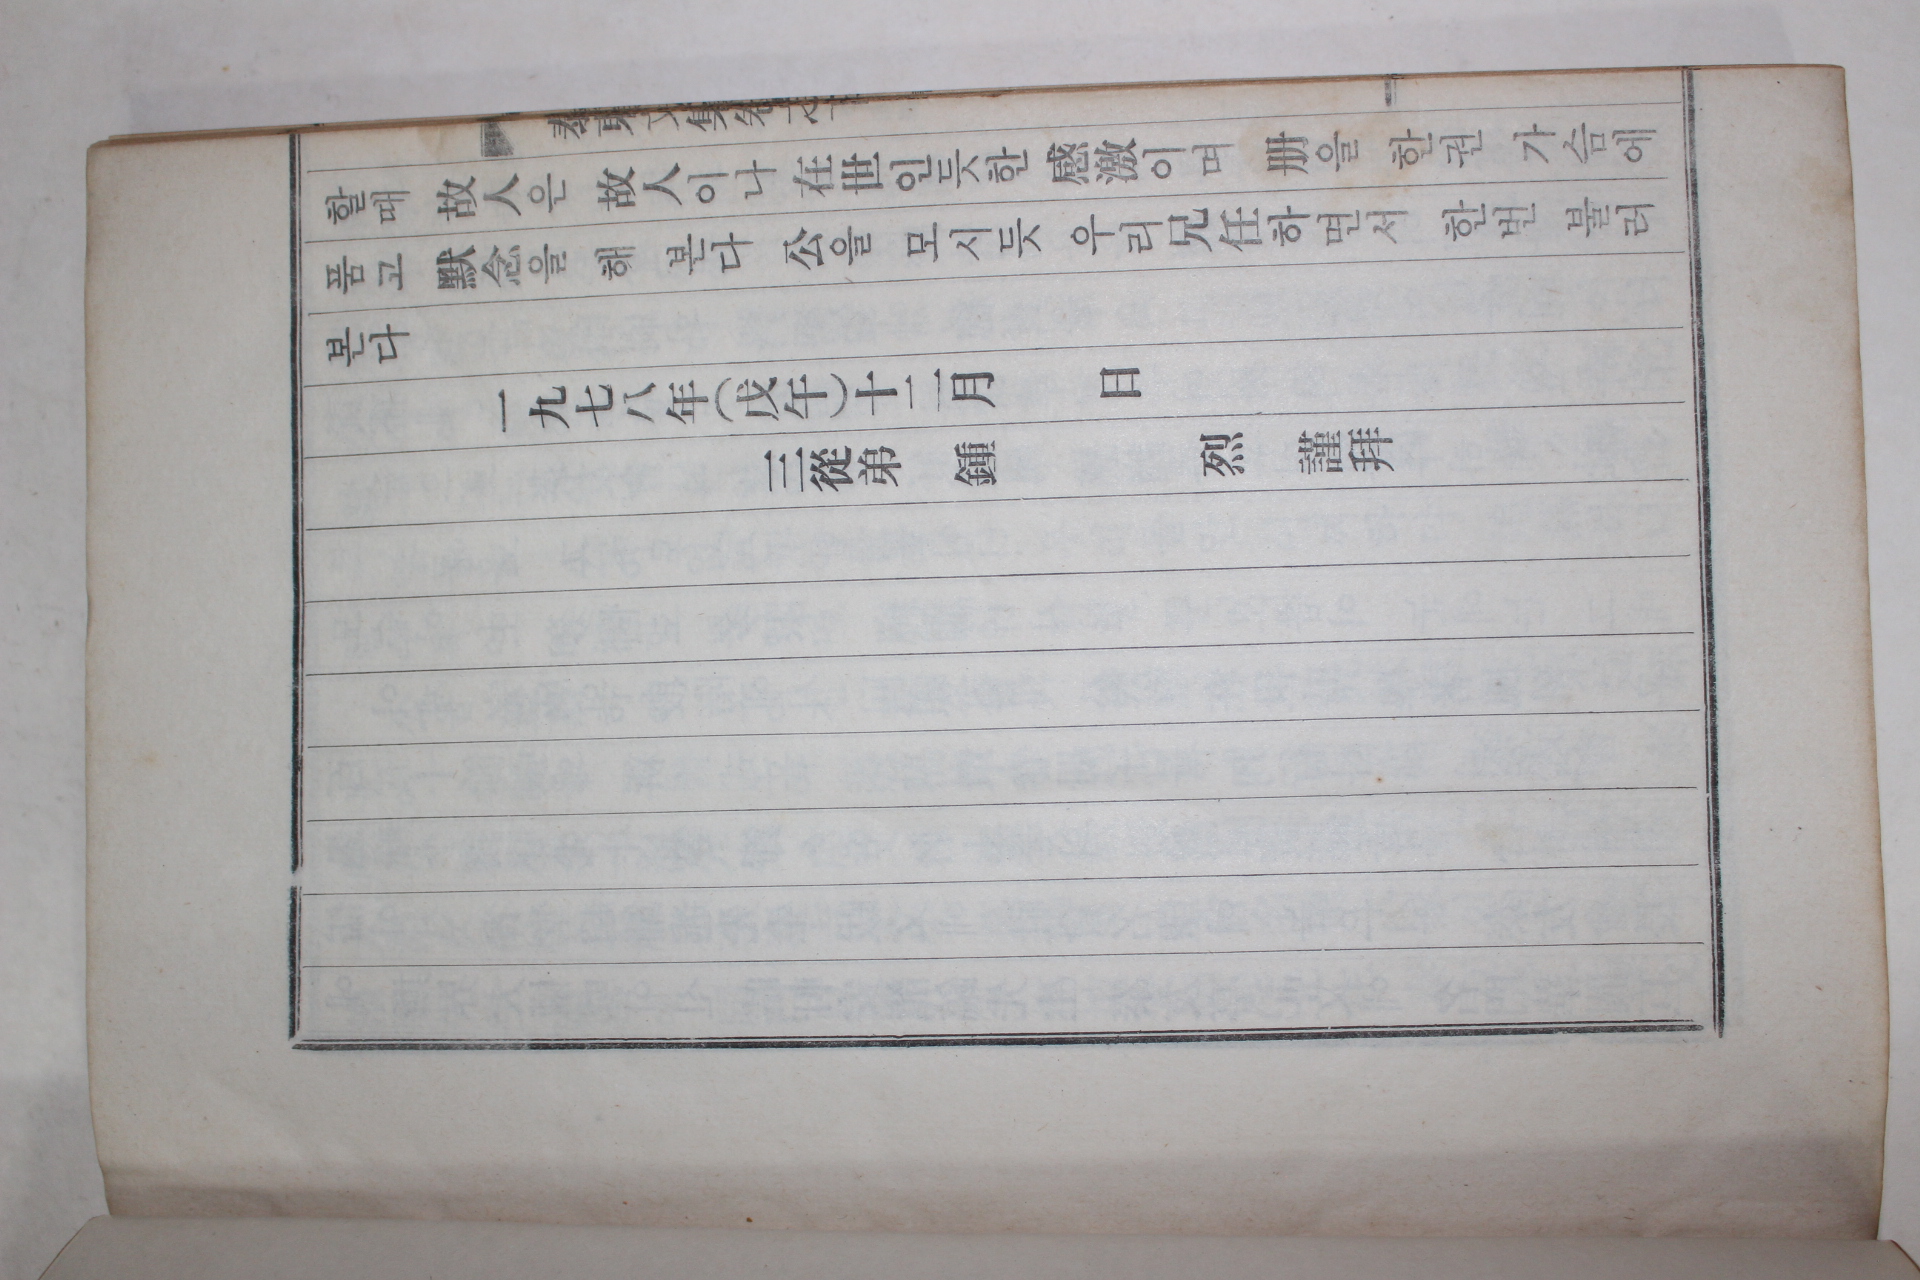 할때 故人은 故人이나 在世인듯한 感激이며 册을 한권 가슴에
품고 默念을 해 본다 公을 모시듯 우리兄任하면서 한번 불러
본다
一九七八年(戊午)十二月 日
三從弟 鍾 烈 謹拜